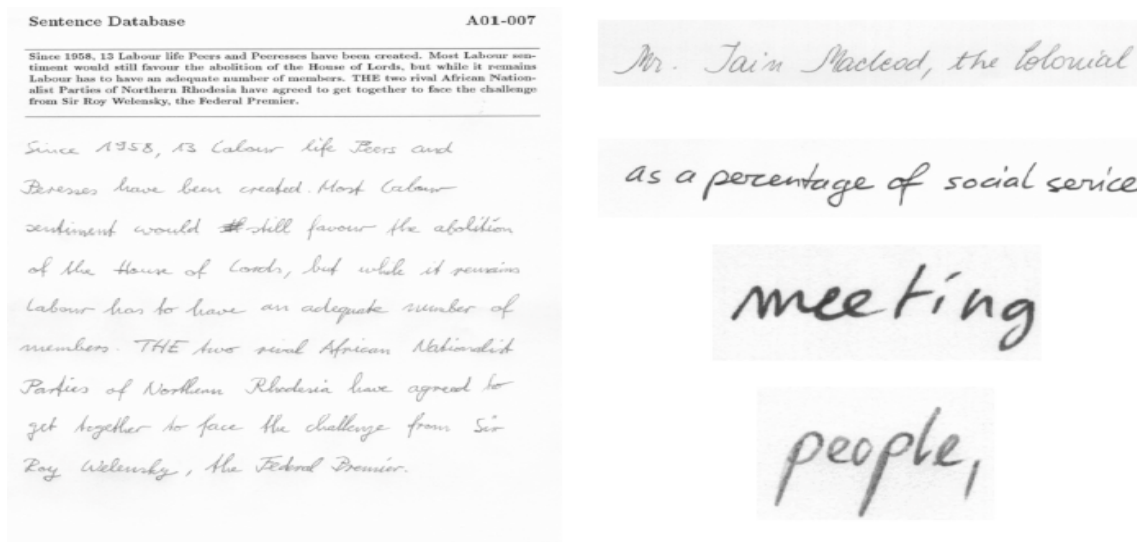 Sentence Database A01-007
Since 1958, 13 Labour life Peers and Peeresses have been created. Most Labour sen-
timent would still favour the abolition of the House of Lords, but while it remains
Labour has to have an adequate number of members. THE two rival African Nation-
alist Parties of Northern Rhodesia have agreed to get together to face the challenge
from Sir Roy Welensky, the Federal Premier.
Since 1958, 13 Labour life Peers and
Peresses have been created. Most Labour
sentiment would still favour the abolition
of the House of Lords, but while it remains
Labour has to have an adequate number of
members. THE two rival African Nationalist
Parties of Northern Rhodesia have agreed to
get together to face the challenge from Sir
Roy Welensky, the Federal Premier.
Mr. Iain Macleod, the Colonial
as a percentage of social service
meeting
people,